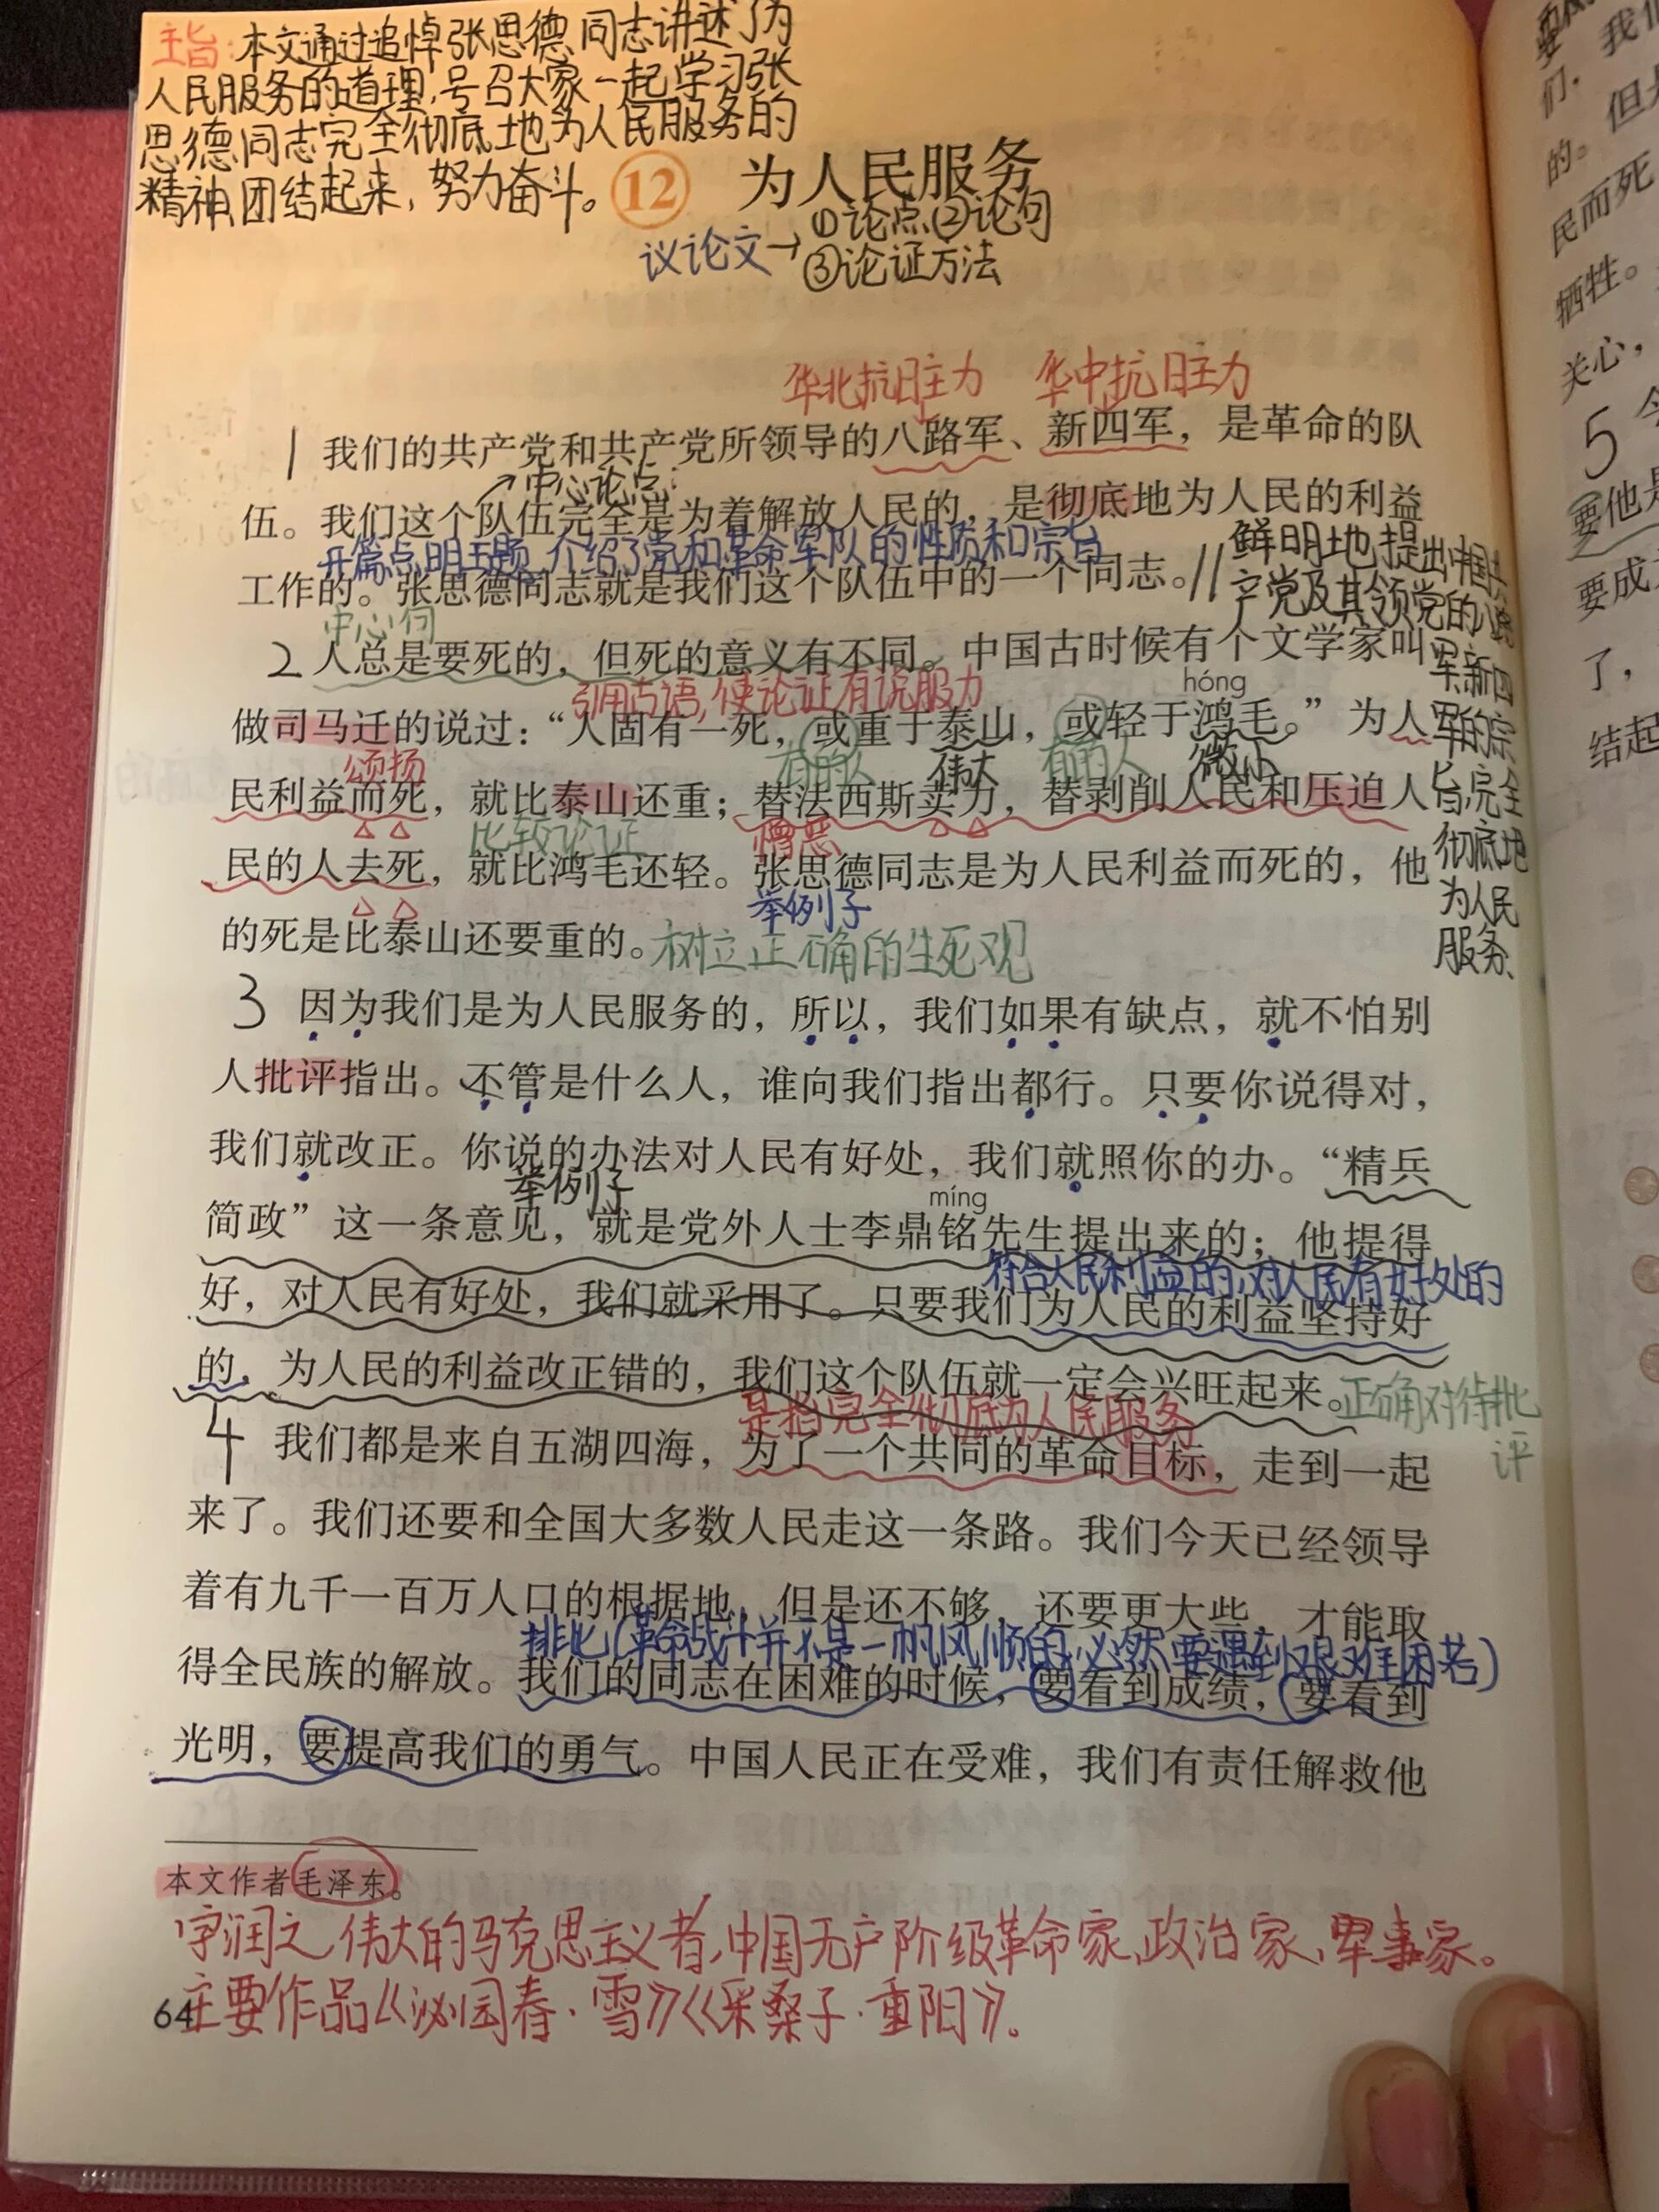 主旨:本文通过追悼张思德同志讲述了为
人民服务的道理,号召大家一起学习张
思德同志完全彻底地为人民服务的
精神,团结起来,努力奋斗。
12 为人民服务
议论文→①论点②论句
③论证方法
华北抗日主力 华中抗日主力
1 我们的共产党和共产党所领导的八路军、新四军，是革命的队
中心论点:
伍。我们这个队伍完全是为着解放人民的，是彻底地为人民的利益
开篇点明主题,介绍了党和革命军队的性质和宗旨
工作的。张思德同志就是我们这个队伍中的一个同志。//
鲜明地提出中国共
产党及其领党的八路
军新四
军的宗
旨,完全
彻底地
为人民
服务、
中心句
2 人总是要死的，但死的意义有不同。中国古时候有个文学家叫
引用古语,使论证有说服力
hóng
做司马迁的说过：“人固有一死，或重于泰山，或轻于鸿毛。”为人
颂扬 有的人 伟大 有的人 微小
民利益而死，就比泰山还重；替法西斯卖力，替剥削人民和压迫人
比较论证 憎恶
民的人去死，就比鸿毛还轻。张思德同志是为人民利益而死的，他
举例子
的死是比泰山还要重的。树立正确的生死观
3 因为我们是为人民服务的，所以，我们如果有缺点，就不怕别
人批评指出。不管是什么人，谁向我们指出都行。只要你说得对，
我们就改正。你说的办法对人民有好处，我们就照你的办。“精兵
举例子
míng
简政”这一条意见，就是党外人士李鼎铭先生提出来的；他提得
符合人民利益的,对人民有好处的
好，对人民有好处，我们就采用了。只要我们为人民的利益坚持好
的，为人民的利益改正错的，我们这个队伍就一定会兴旺起来。正确对待批
评
是指完全彻底为人民服务
4 我们都是来自五湖四海，为了一个共同的革命目标，走到一起
来了。我们还要和全国大多数人民走这一条路。我们今天已经领导
着有九千一百万人口的根据地，但是还不够，还要更大些，才能取
排比(革命战斗并不是一帆风顺的,必然要遇到艰难困苦)
得全民族的解放。我们的同志在困难的时候，要看到成绩，要看到
光明，要提高我们的勇气。中国人民正在受难，我们有责任解救他
本文作者毛泽东。
字润之,伟大的马克思主义者,中国无产阶级革命家,政治家、军事家。
主要作品《沁园春·雪》《采桑子·重阳》。
64
我们
们，
但是
的。
民而死
牺牲。
关心，
5 今
要他是
要成
了，
结起